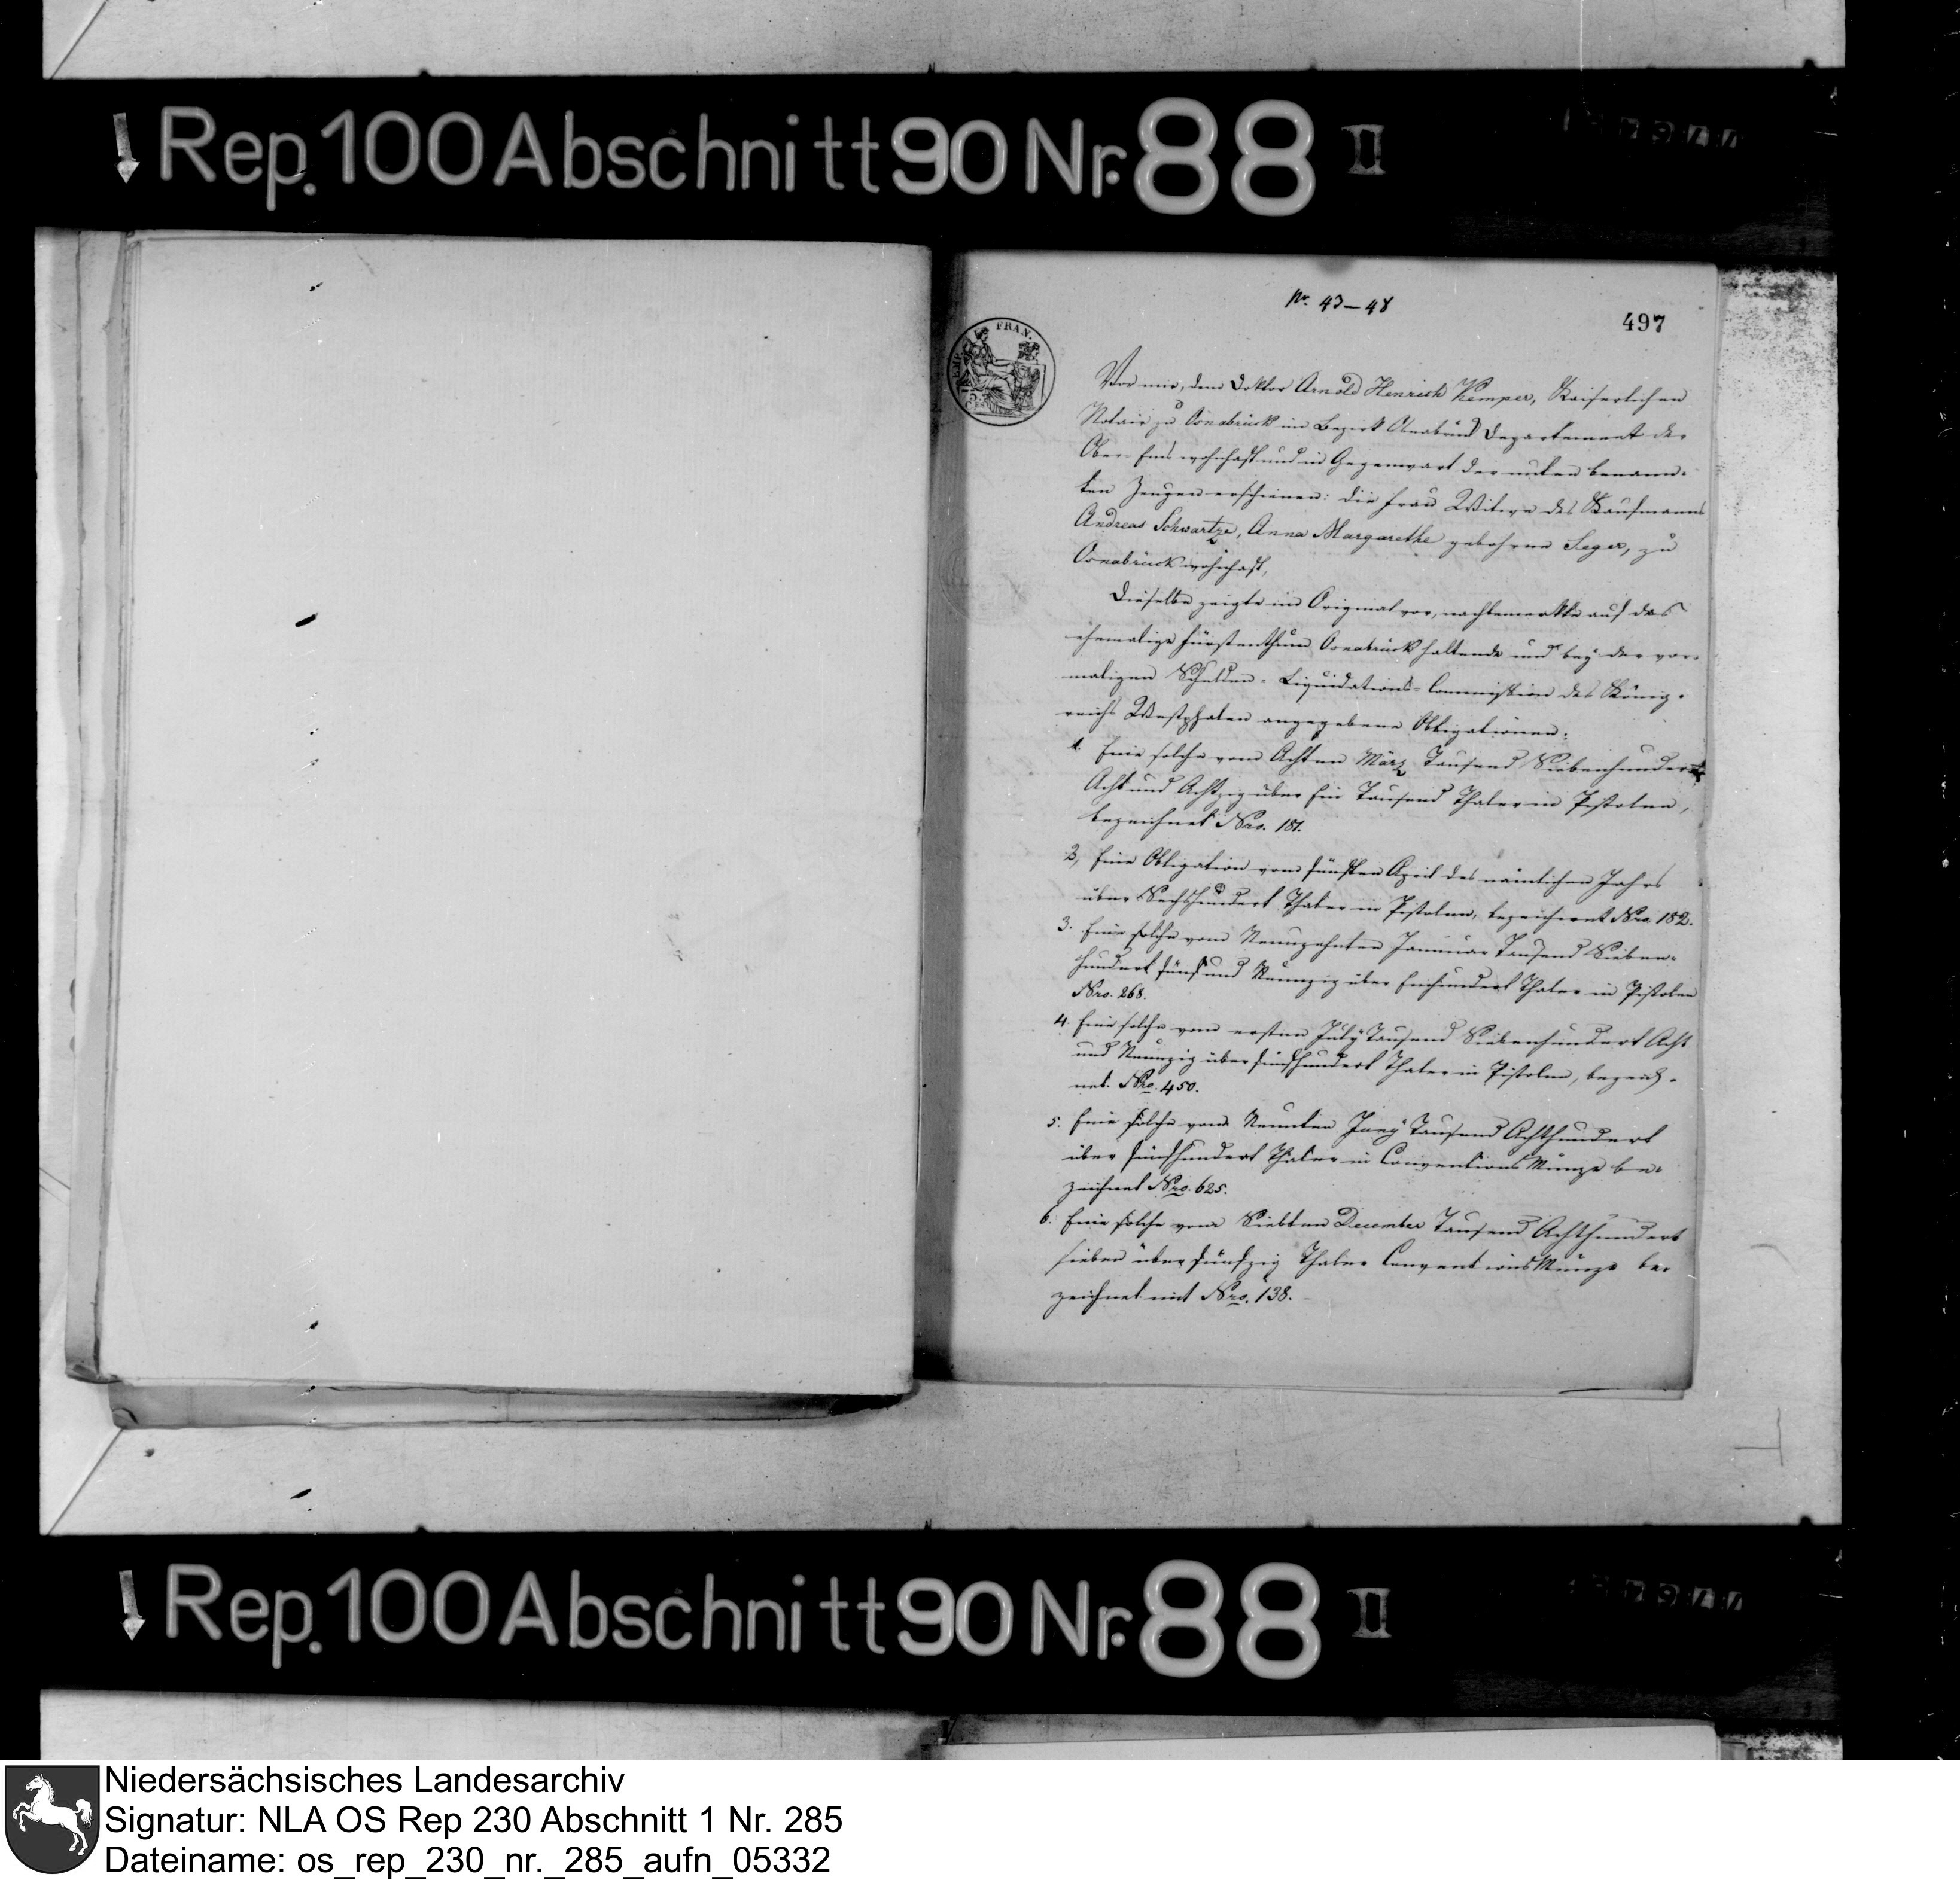 Rep. 100 Abschnitt 90 Nr. 88 II
Nr. 43–48
497
EMP. FRAN.
Vor mir, dem Doktor Arnold Henrich Kemper, Kaiserlichen
Notair zu Osnabrück im Bezirk Osnabrück Departement der
Ober-Ems wohnhaft und in Gegenwart der unten benann-
ten Zeugen erschienen: die Frau Witwe des Kaufmanns
Andreas Schwartze, Anna Margarethe gebohrne Seger, zu
Osnabrück wohnhaft,
Dieselbe zeigte im Original vor, nachbemerkte auf das
ehemalige Fürstenthum Osnabrück haltende und bey der vor-
maligen Schulden-Liquidations-Commission des König-
reichs Westphalen angegebene Obligationen:
1. Eine solche vom Achten März Tausend Siebenhundert
Acht und Achtzig über Ein Tausend Thaler in Pistolen,
bezeichnet Nro. 181.
2, Eine Obligation vom fünften April des nämlichen Jahrs
über Sechshundert Thaler in Pistolen, bezeichnet Nro 182.
3. Eine solche vom Neunzehnten Januar Tausend Sieben-
hundert fünf und Neunzig über Einhundert Thaler in Pistolen
Nro. 268.
4. Eine solche vom ersten July Tausend Siebenhundert Acht
und Neunzig über fünfhundert Thaler in Pistolen, bezeich-
net Nro. 450.
5. Eine solche vom Neunten Juny Tausend Achthundert
über fünfhundert Thaler in Conventions Münze be-
zeichnet Nro. 625.
6. Eine solche vom Siebten December Tausend Achthundert
sieben über fünfzig Thaler Conventions Münze be-
zeichnet mit Nro. 138.
Rep. 100 Abschnitt 90 Nr. 88 II
Niedersächsisches Landesarchiv
Signatur: NLA OS Rep 230 Abschnitt 1 Nr. 285
Dateiname: os_rep_230_nr._285_aufn_05332